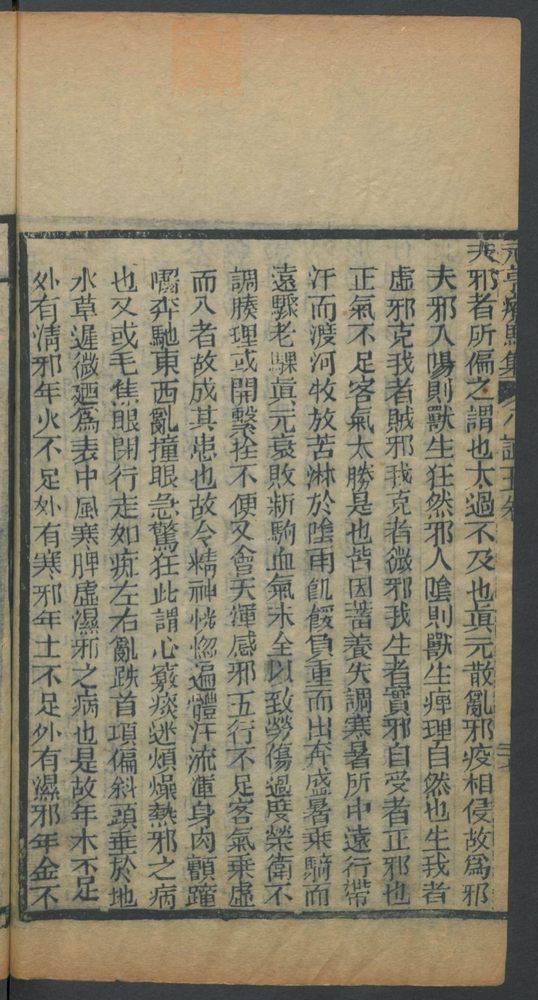 元亨療馬集 八證五
夫邪者所偏之謂也太過不及也眞元散亂邪疫相侵故爲邪
夫邪入陽則獸生狂然邪入陰則獸生痺理自然也生我者
虛邪克我者賊邪我克者微邪我生者實邪自受者正邪也
正氣不足客氣太勝是也皆因蓄養失調寒暑所中遠行帶
汗而渡河牧放苦淋於陰雨飢餒負重而出奔盛暑乘騎而
遠驟老騍眞元衰敗新駒血氣未全以致勞傷過度榮衛不
調腠理或開繫拴不便又會天運感邪五行不足客氣乘虛
而入者故成其患也故令精神恍惚遍體汗流渾身肉顫蹱
奔馳東西亂撞眼急驚狂此謂心竅痰迷煩燥熱邪之病
也又或毛焦眼閉行走如痴左右亂跌首項偏斜頭垂於地
水草遲微廼爲表中風寒脾虛濕邪之病也是故年木不足
外有清邪年火不足外有寒邪年土不足外有濕邪年金不